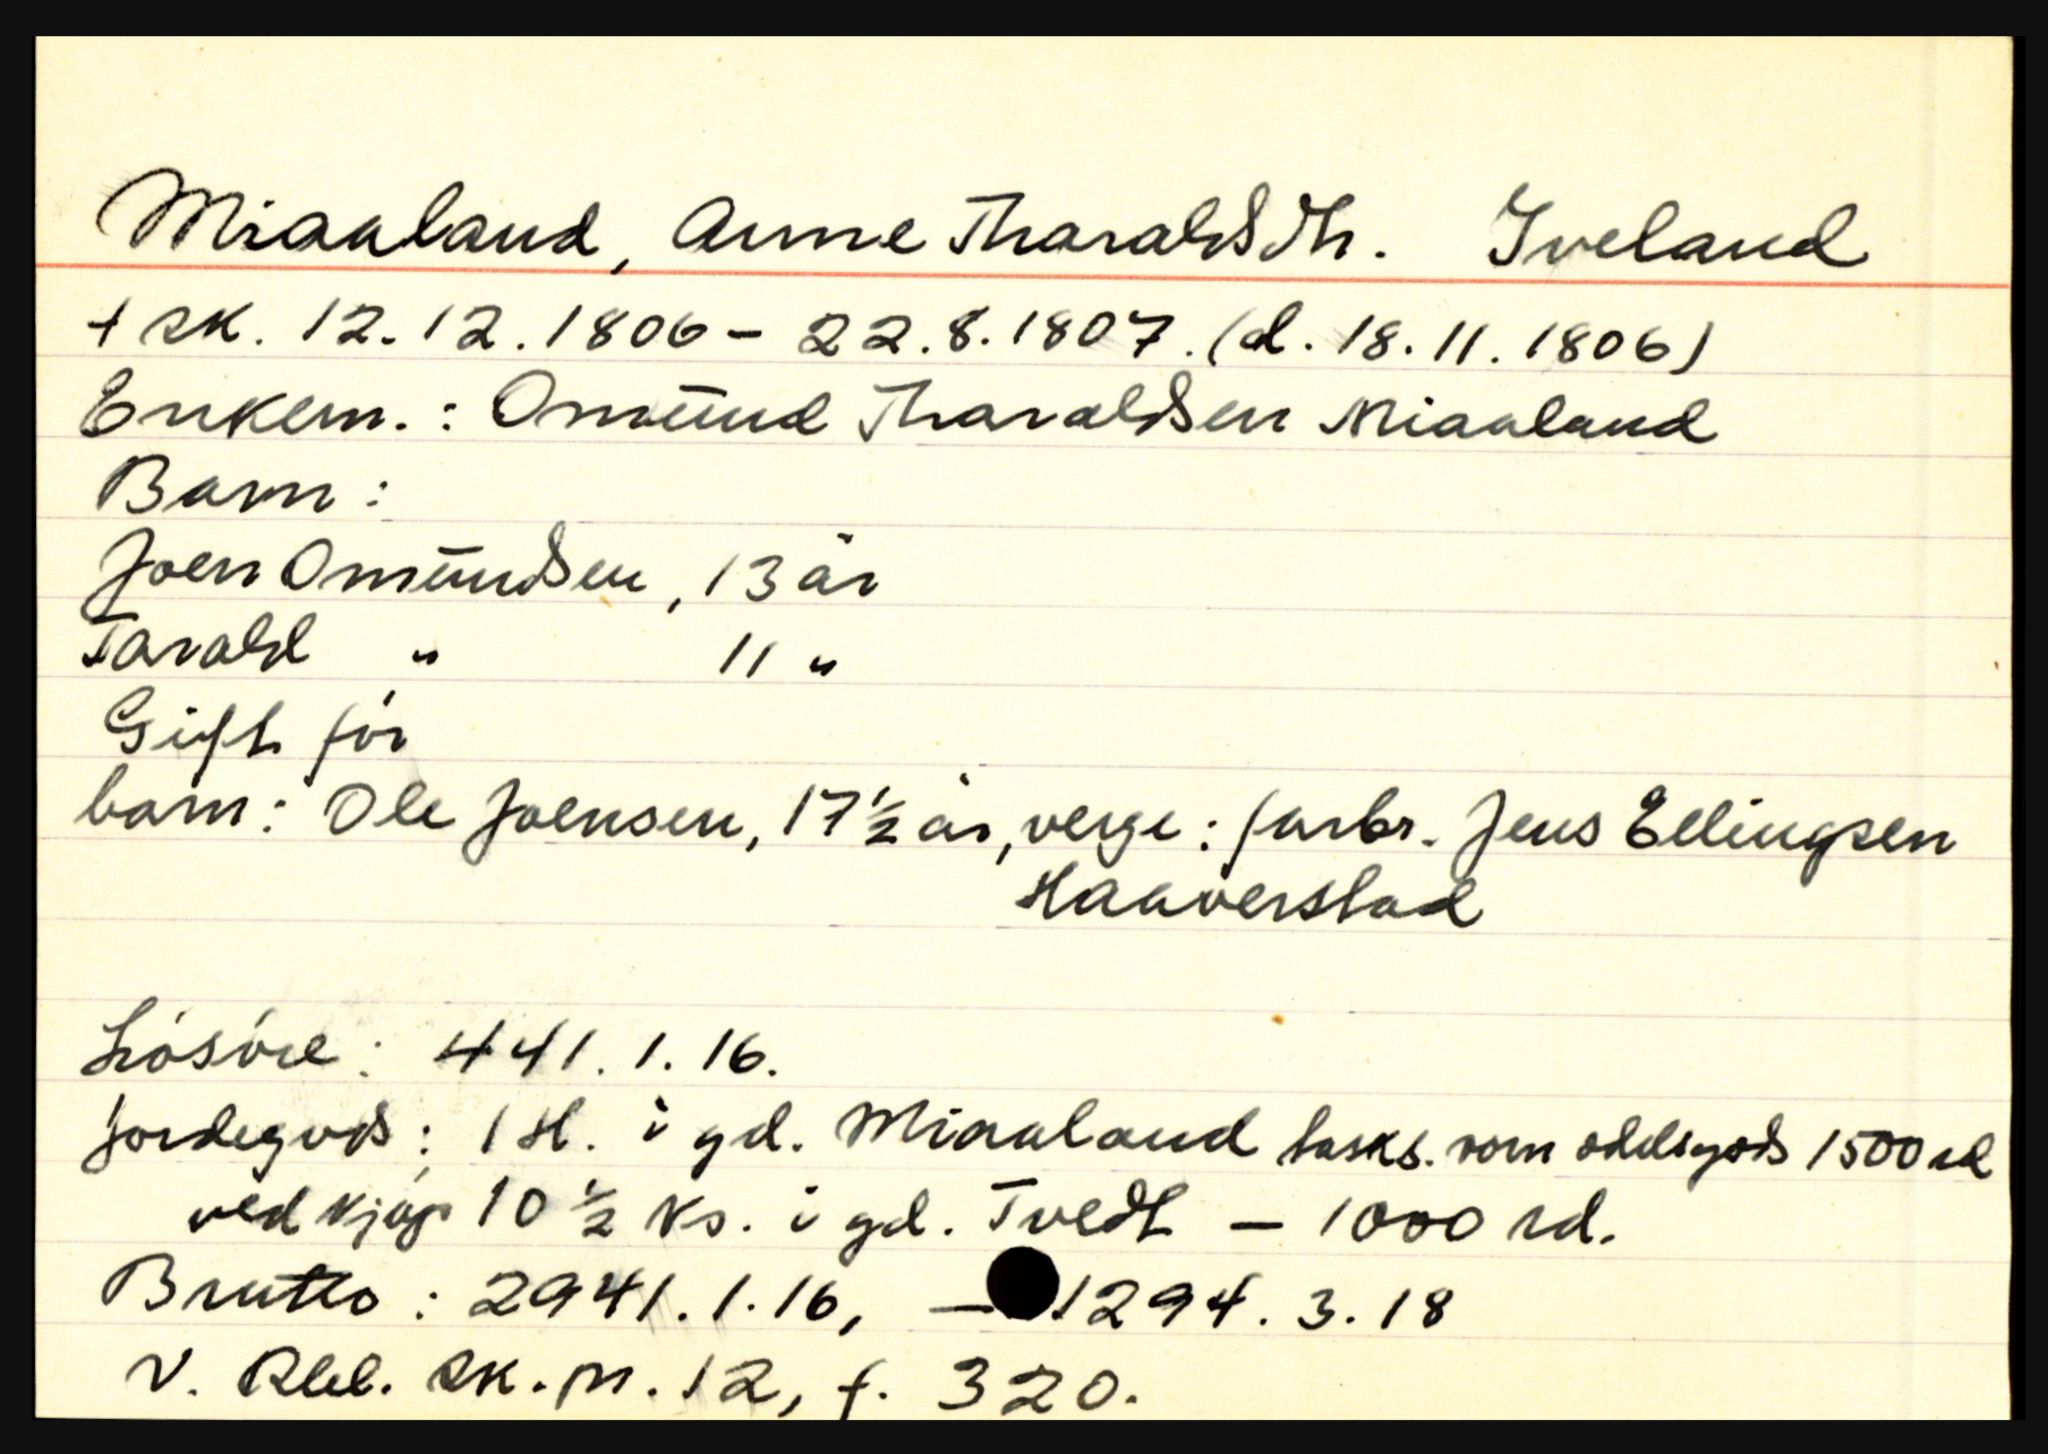 Miaaland, Anne Tharaldsdtr. Iveland
+ sk. 12.12.1806 - 22.8.1807. (d. 18.11.1806)
Enkem.: Omund Tharaldsen Miaaland
Barn:
Joen Omundsen, 13 år
Tarald " 11 "
Gift før
barn: Ole Joensen, 17 ½ år, verge: farbr. Jens Ellingsen
Haaverstad
Løsøre: 441. 1. 16.
Jordegods: 1 H. i gd. Miaaland taks. som oddsgods 1500 rd
ved kjøp 10 ½ ks. i gd. Tvedt - 1000 rd.
Brutto: 2941. 1. 16, - 1294. 3. 18
V. Rbl. sk. pr. 12, f. 320.